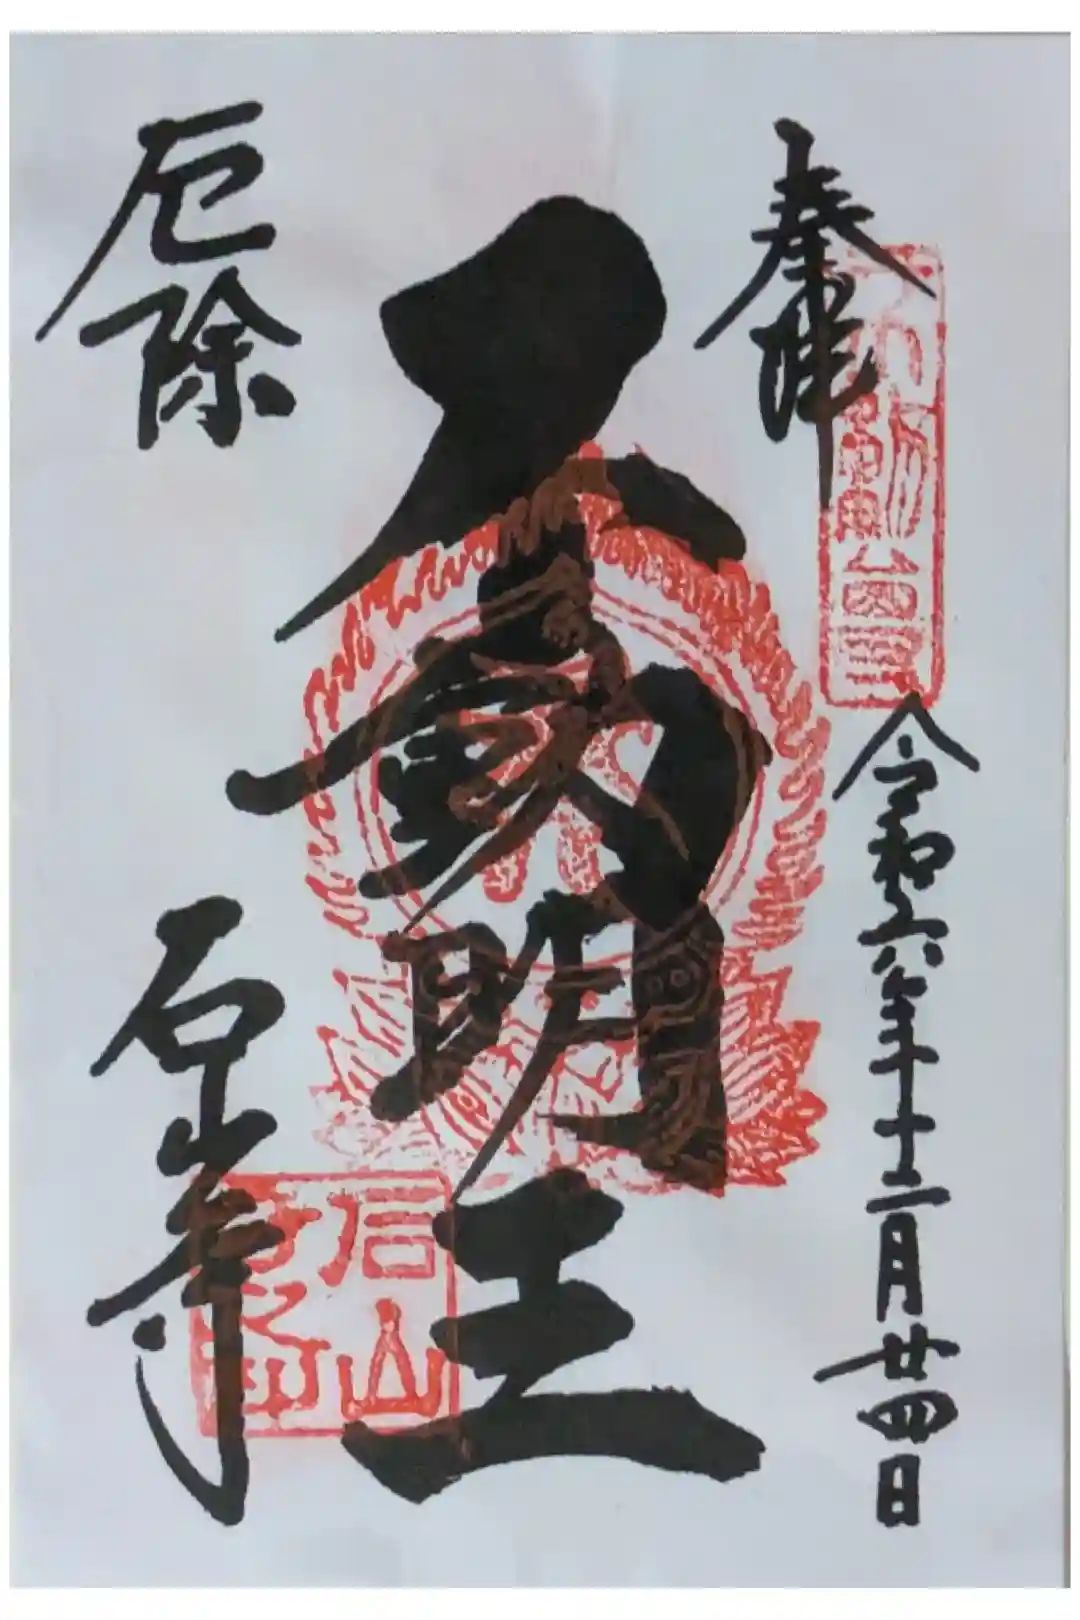 奉拝
令和六年十二月廿四日
不動明王
厄除
石山寺
石山寺之印